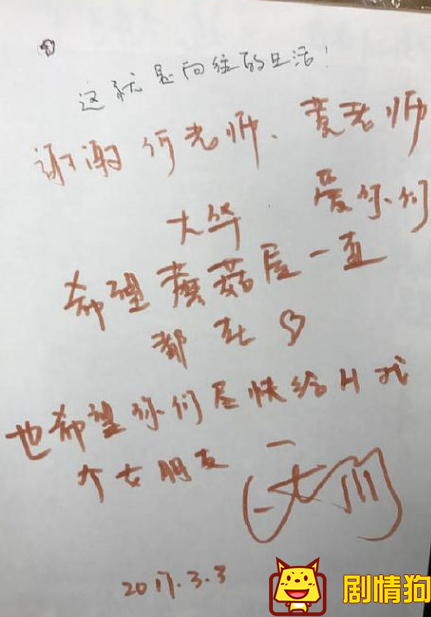 这就是向往的生活！
谢谢何老师、黄老师
大华 爱你们
希望蘑菇屋一直
都在♡
也希望你们尽快给H找
个女朋友
2017.3.3
剧情狗